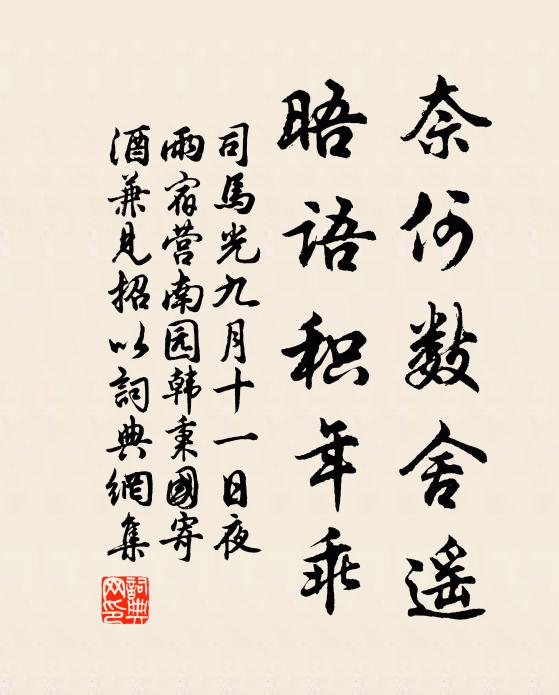 奈何数舍遥
晤语积年乖
司馬光九月十一日夜
雨宿营南园韩秉國寄
酒兼見招以詞典網集
詞典网印